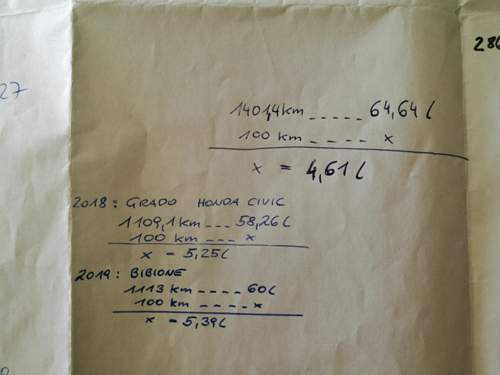 27
280
1401,4 km _ _ _ _ _ 64,64 l
100 km _ _ _ _ _ x
x = 4,61 l
2018: GRADO HONDA CIVIC
1109,1 km _ _ _ 58,26 l
100 km _ _ _ x
x = 5,25 l
2019: BIBIONE
1113 km _ _ _ _ 60 l
100 km _ _ _ _ _ x
x = 5,39 l